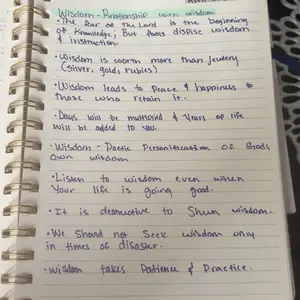 Wisdom - Relationship with wisdom
• The fear of the Lord is the beginning
of Knowledge; But fools dispise wisdom
& instruction.
• Wisdom is worth more than jewelry
(silver, gold, rubies)
• Wisdom leads to peace & happiness to
those who retain it.
• Days will be multiplied & Years of life
will be added to you.
• Wisdom - Poetic Personification of Gods
own wisdom
• Listen to wisdom even when
Your life is going good.
• It is destructive to Shun wisdom.
• We Should not Seek wisdom only
in times of disaster.
• Wisdom takes Patience & Practice.